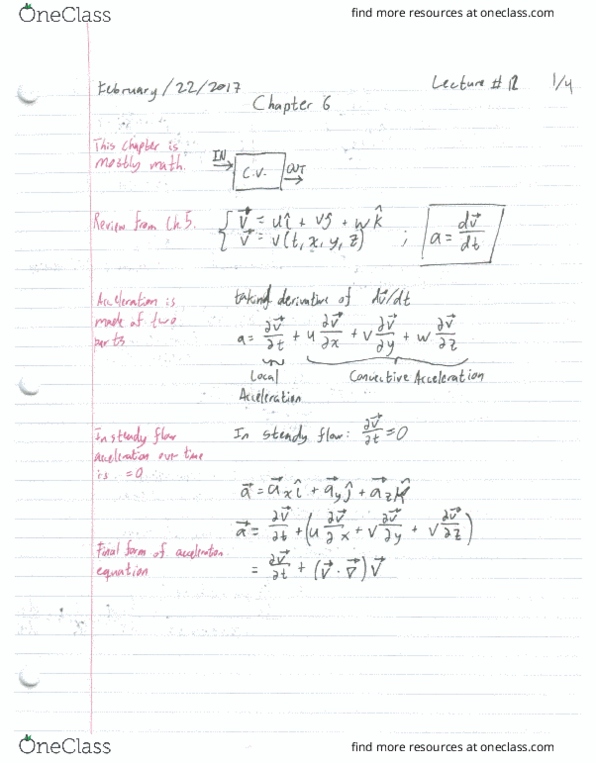 OneClass
find more resources at oneclass.com
February/22/2017
Lecture # 12 1/4
Chapter 6
This chapter is
mostly math.
IN C.V. OUT
Review from Ch.5.
V⃗ = uî + vĵ + wk̂
V⃗ = v(t, x, y, z) ; a = dv⃗/dt
Acceleration is
made of two
parts
taking derivative of dv⃗/dt
a = ∂V⃗/∂t + u ∂V⃗/∂x + v ∂V⃗/∂y + w ∂V⃗/∂z
Local
Acceleration
Convective Acceleration
In steady flow
acceleration over time
is = 0
In steady flow: ∂V⃗/∂t = 0
a⃗ = a⃗xî + a⃗yĵ + a⃗zk̂
a⃗ = ∂V⃗/∂t + (u ∂V⃗/∂x + v ∂V⃗/∂y + v ∂V⃗/∂z)
Final form of acceleration
equation
= ∂V⃗/∂t + (V⃗ · ∇⃗)V⃗
OneClass
find more resources at oneclass.com